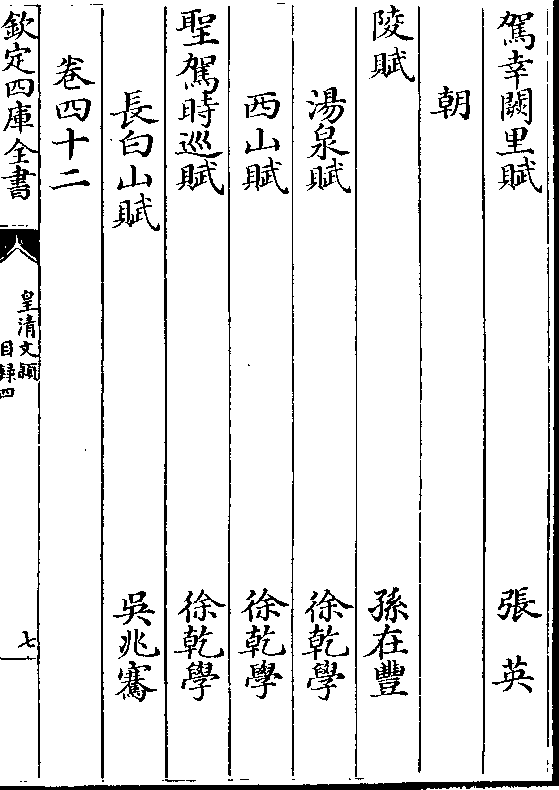 駕幸闕里賦 張英
朝
陵賦 孫在豐
湯泉賦 徐乾學
西山賦 徐乾學
聖駕時巡賦 徐乾學
長白山賦 吳兆騫
卷四十二
欽定四庫全書
皇清文穎
目録四
七